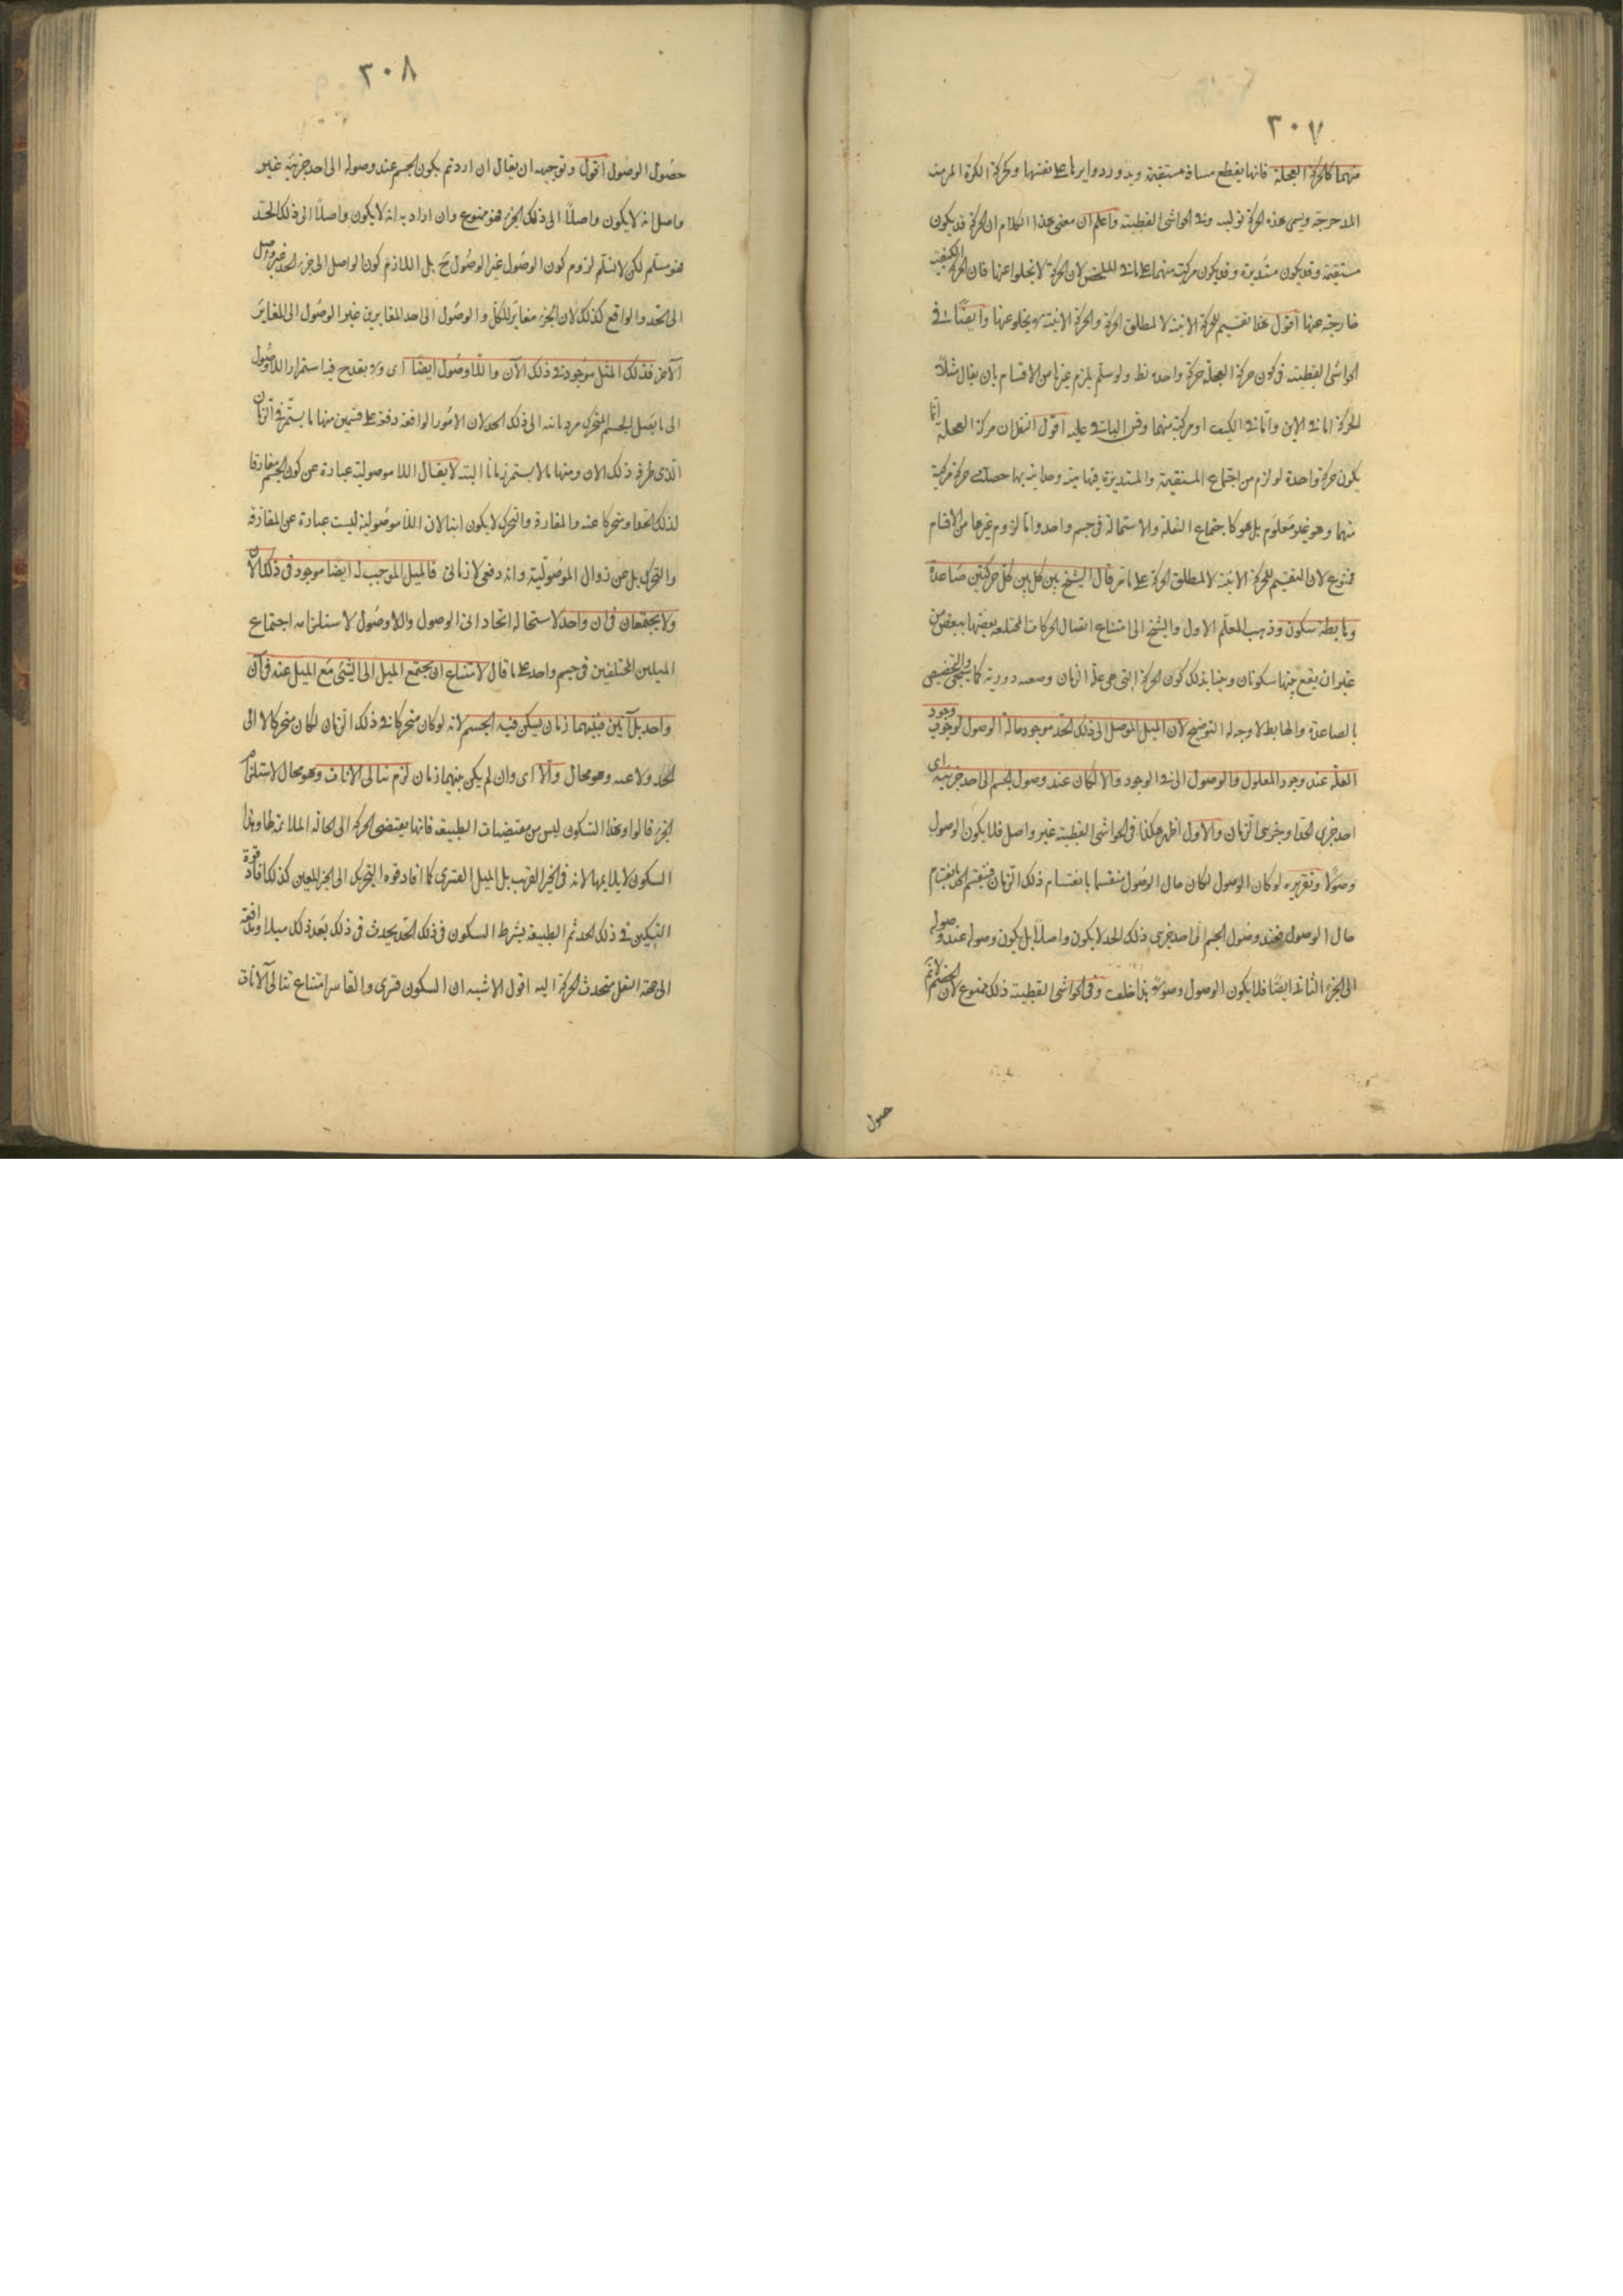 ٣٠٧
منهما كالحركة العجلة فانها يقطع مسافة مستقيمة ويدور دوايرها على نفسها وكحركة الكرة المرمية
المدحرجة ويسمى هذه الحركة توليه وفي الحواشي القطبية واعلم ان معنى هذا الكلام ان الحركة قد يكون
مستقيمة وقد يكون مستديرة وقد يكون مركبة منهما على ما في الملخص لان الحركة لا يخلوا عنها فان الحركة الكيفية
خارجة عنها اقول هذا تقسيم للحركة الاينية لا لمطلق الحركة والحركة الاينية لا يخلو عنها وايضا في
الحواشي القطبية في كون حركة العجلة حركة واحدة نظر ولو سلم يلزم غيرها من الاقسام بان يقال مثلا
الحركة اما في الاين واما في الكيف او مركبة منهما وقس الباقي عليه اقول النظر ان حركة العجلة انما
يكون حركة واحدة لو لزم من اجتماع المستقيمة والمستديرة فيها هيئة وحدانية بها حصلت حركة مركبة
منهما وهو غير معلوم بل هو كاجتماع النقلة والاستحالة في جسم واحد واما لزوم غيرها من الاقسام
فممنوع لان التقسيم للحركة الاينية لا لمطلق الحركة على ما مر قال الشيخ بين كل حركتين صاعدة
وهابطة سكون وذهب المعلم الاول والشيخ الى امتناع اتصال الحركات المختلفة بعضها ببعض من
غير ان يقع بينها سكونات وبينا بذلك كون الحركة التي هي علة الزمان وضعية دورية كما سيجئ والتخصيص
بالصاعدة والهابطة لا وجه له التوضيح لان الميل الموصل الى ذلك الحد موجود حالة الوصول لوجوب وجود
العلة عند وجود المعلول والوصول اني الوجود والا لكان عند وصول الجسم الى احد جزئيه اى
احد جزئى الحد او جزئى الزمان والاول اظهر هكذا في الحواشي القطبية غير واصل فلا يكون الوصول
وصولا وتقريره لو كان الوصول لكان حال الوصول منقسما بانقسام ذلك الزمان فينقسم الحد بانقسام
حال الوصول فعند وصول الجسم الى احد جزئى ذلك الحد لا يكون واصلا بل يكون وصوله عند وصوله
الى الجزء الثاني ايضا فلا يكون الوصول وصولا هذا خلف وفي الحواشي القطبية ذلك ممنوع لان الخصم لا تم
صول
٣٠٨
حصول الوصول اقول وتوجيهه ان يقال ان اردتم بكون الجسم عند وصوله الى احد جزئيه غير
واصل انه لا يكون واصلا الى ذلك الجزء فهو ممنوع وان اراد به انه لا يكون واصلا الى ذلك الحد
فهو مسلم لكن لا نسلم لزوم كون الوصول غير الوصول ح بل اللازم كون الواصل الى جزء الحد غير واصل
الى الحد والواقع كذلك لان الجزء مغاير للكل والوصول الى احد المغايرين غير الوصول الى المغاير
الآخر فذلك الميل موجود في ذلك الآن واللاوصول ايضا اى ولا يقدح فيه استمرار اللاوصول
الى ما يصل الجسم المتحرك مرة ثانية الى ذلك الحد لان الامور الواقعة دفعة على قسمين منها ما يستمر في الزمان
الذي طرفه ذلك الان ومنها ما لا يستمر زمانا البتة لا يقال اللاموصولية عبارة عن كون الجسم مفارقا
لذلك الحد او متحركا عنه والمفارقة والتحرك لا يكون انيا لان اللاموصولية ليست عبارة عن المفارقة
والتحرك بل عن زوال الموصولية وانه دفعى لا زمانى فالميل الموجب له ايضا موجود في ذلك الآن
ولا يجتمعان في ان واحد لاستحالة اتحاد اني الوصول واللاوصول لاستلزامه اجتماع
الميلين المختلفين في جسم واحد على ما قال لامتناع ان يجتمع الميل الى الشئ مع الميل عنه في آن
واحد بل آنين فبينهما زمان يسكن فيه الجسم لانه لو كان متحركا في ذلك الزمان لكان متحركا لا الى
الحد ولا عنه وهو محال والا اى وان لم يكن بينهما زمان لزم تتالى الآنات وهو محال لاستلزام
الجزء قالوا وهذا السكون ليس من مقتضيات الطبيعة فانها يقتضى الحركة الى الحالة الملائمة لها وهذا
السكون لا يلايمها لانه في الحيز الغريب بل الميل القسرى كما افاد قوة التحريك الى الحيز المعين كذلك افاد قوة
التسكين في ذلك الحد ثم الطبيعة بشرط السكون في ذلك الحد يحدث في ذلك بعد ذلك ميلا ومدافعة
الى جهة السفل فتحدث الحركة اليه اقول الاشبه ان السكون قسرى والقاسر امتناع تتالى الآنات